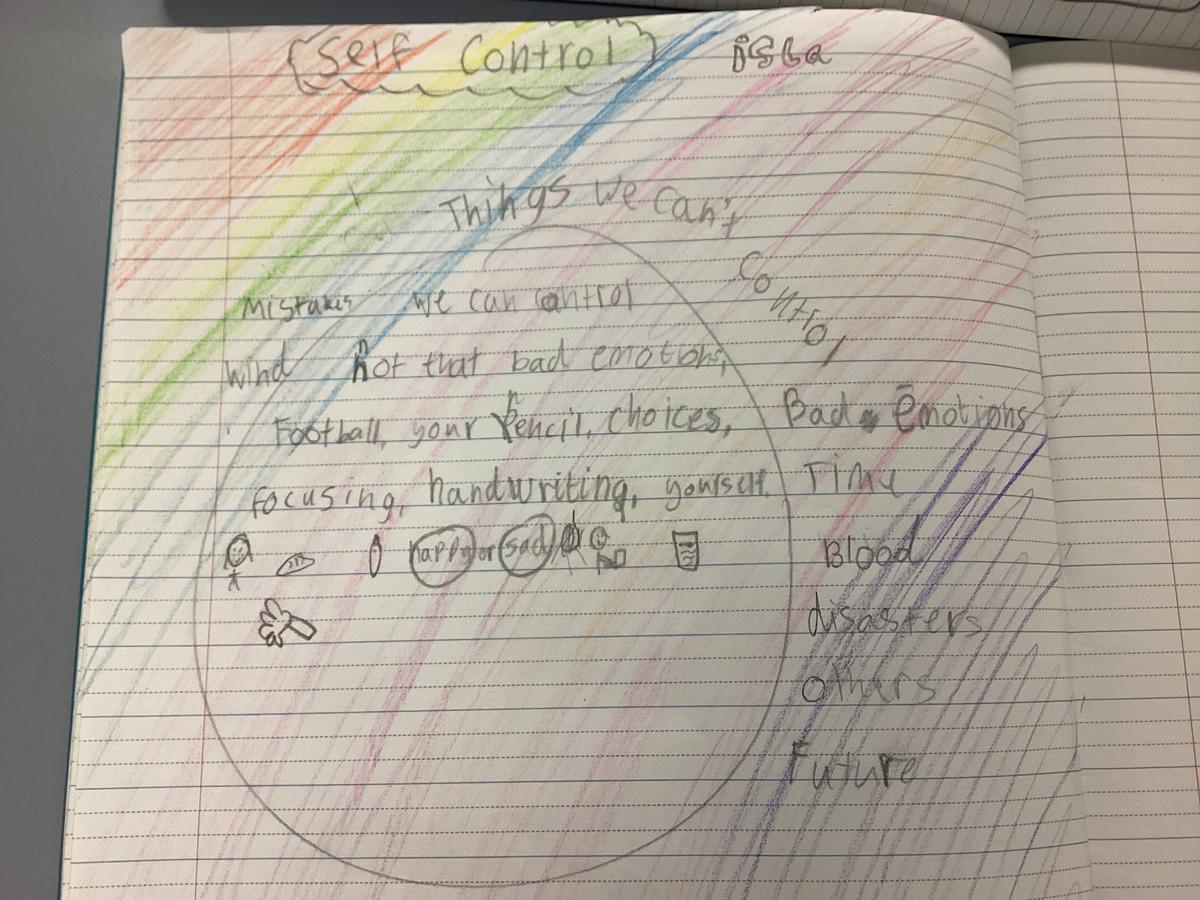 Self Control
Things we can't
control
Mistakes we can control
Wind not that bad emotions,
Football, your Pencil, choices, Bad emotions
focusing, handwriting, yourself. Time
happy or sad
Blood
disasters
others
Future